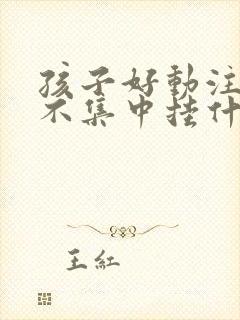 孩子好動注
不集中挂什
王紅